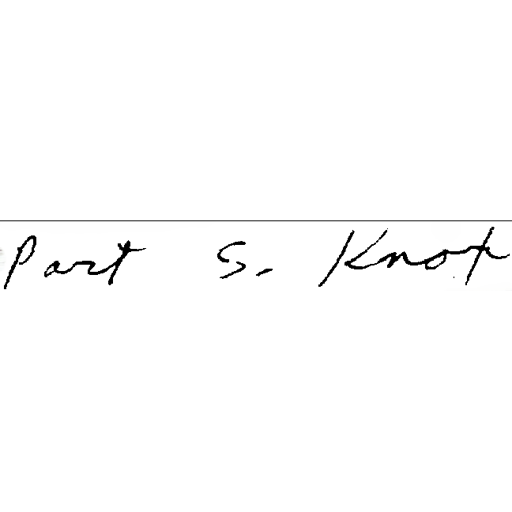 Part S. Knot